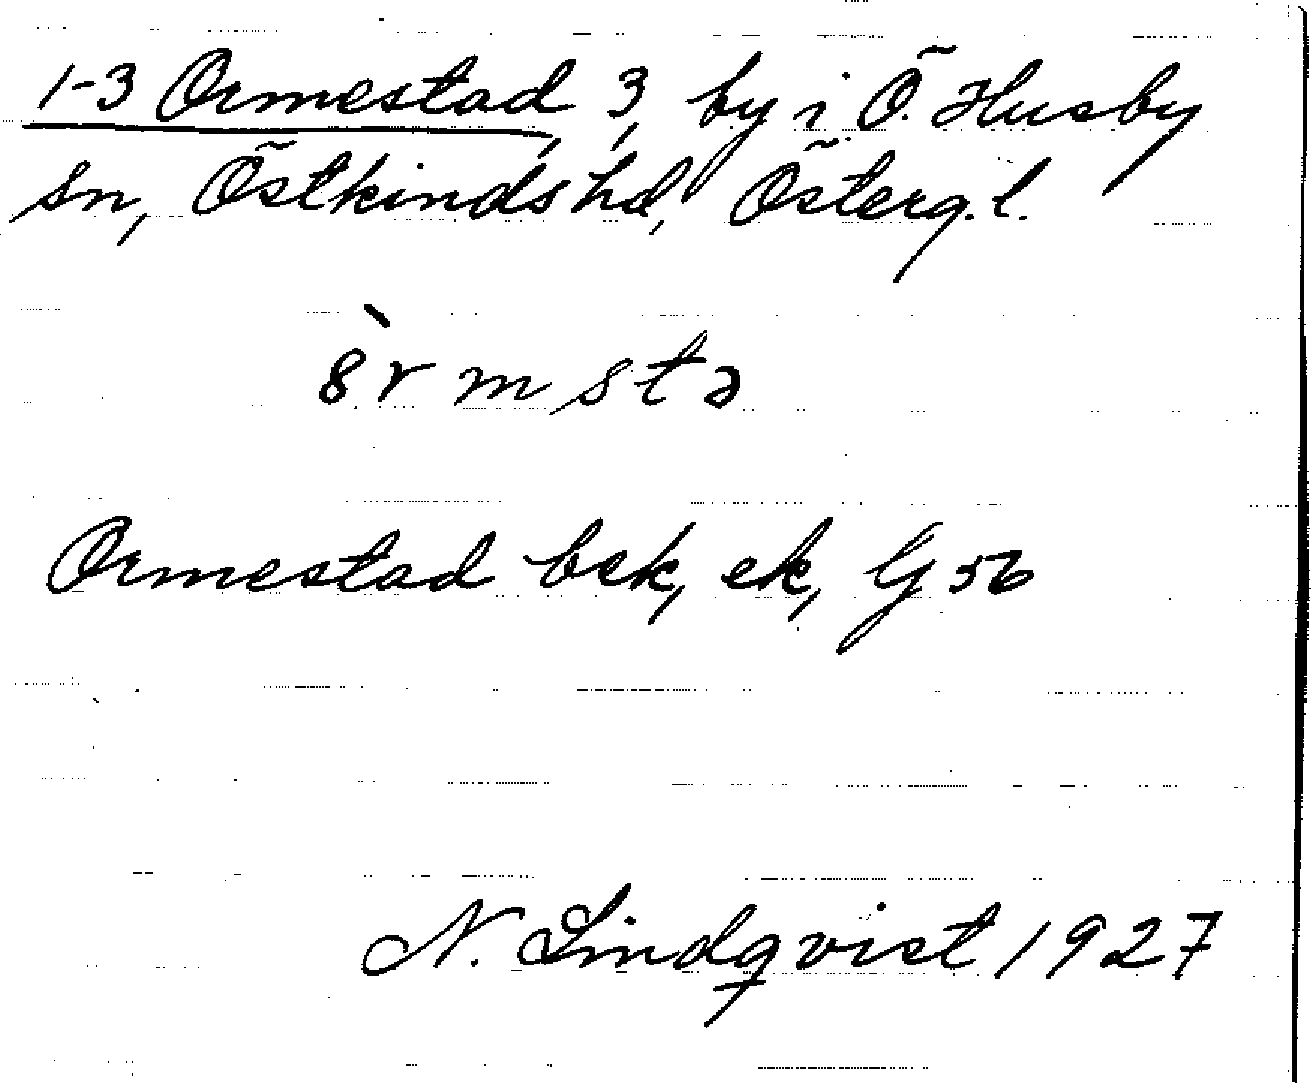 1-3 Ormestad, 3, by i Ö. Husby
sn, Östkinds hd, Österg. l.
8̀rmstə
Ormestad bek, ek, G 56
N. Lindqvist 1927